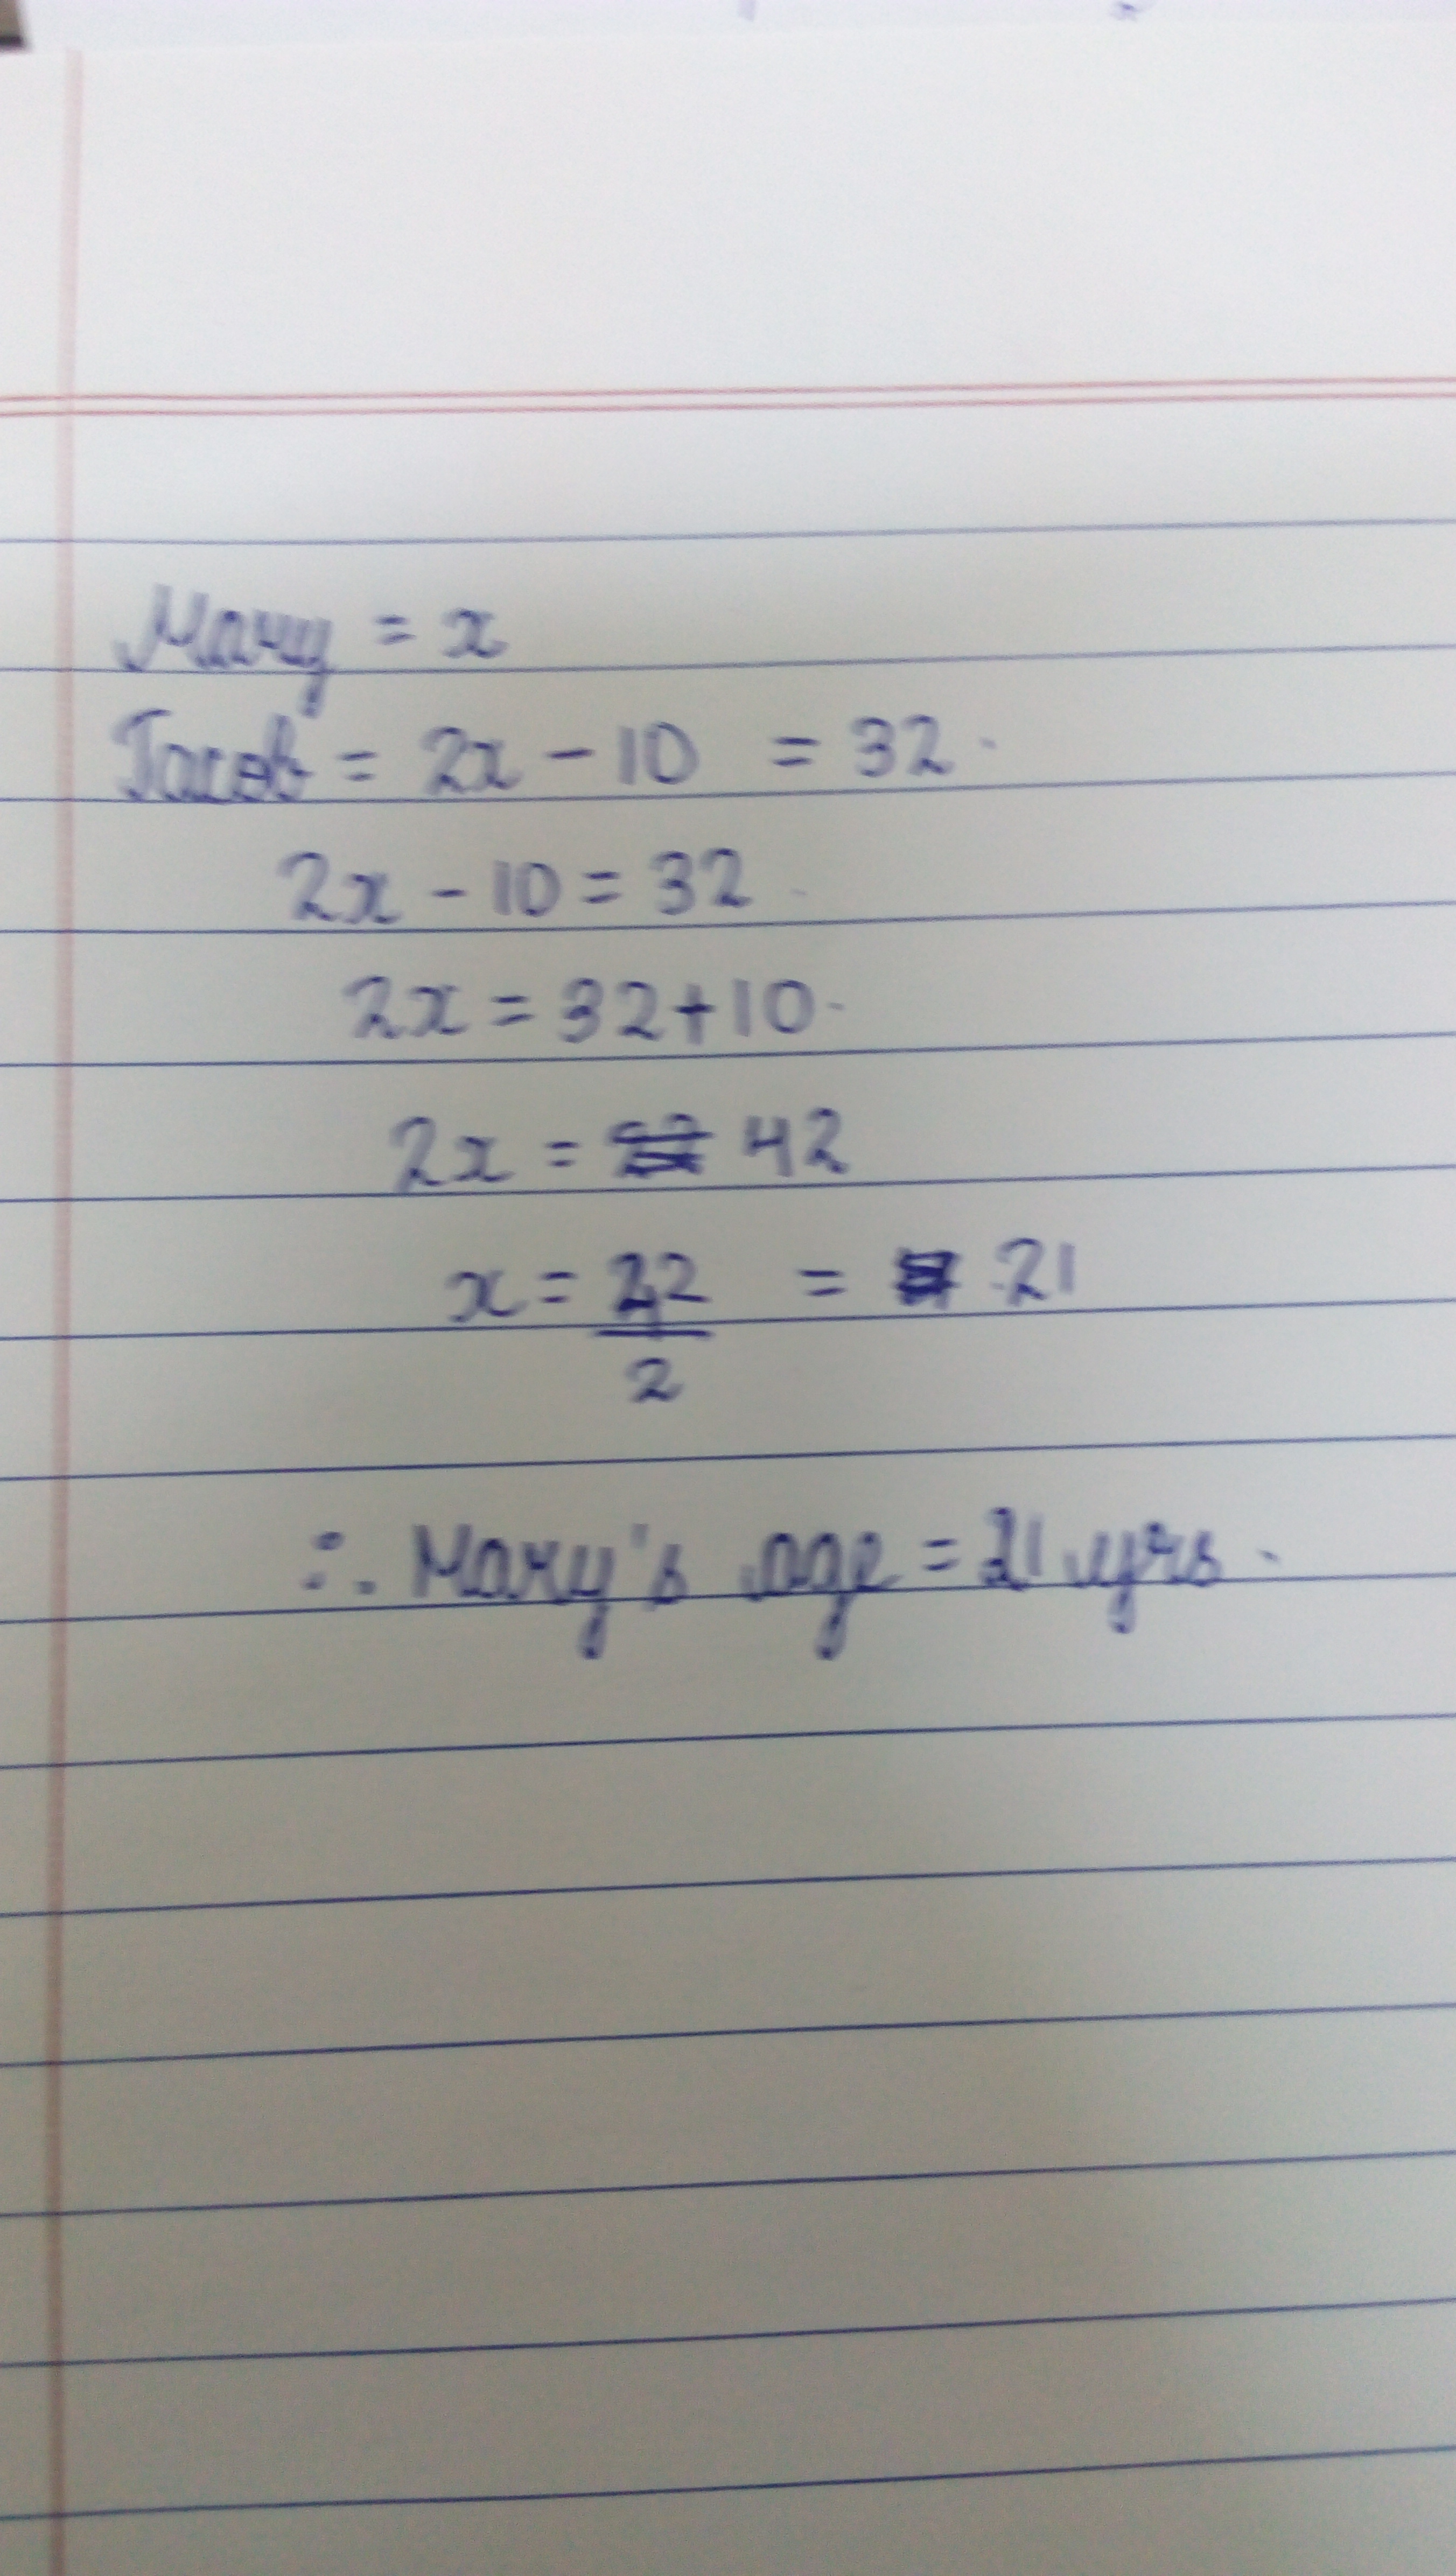 Mary = x
Jacob = 2x - 10 = 32.
2x - 10 = 32
2x = 32 + 10.
2x = 42
x = 42/2 = 21
∴ Mary's age = 21 yrs.